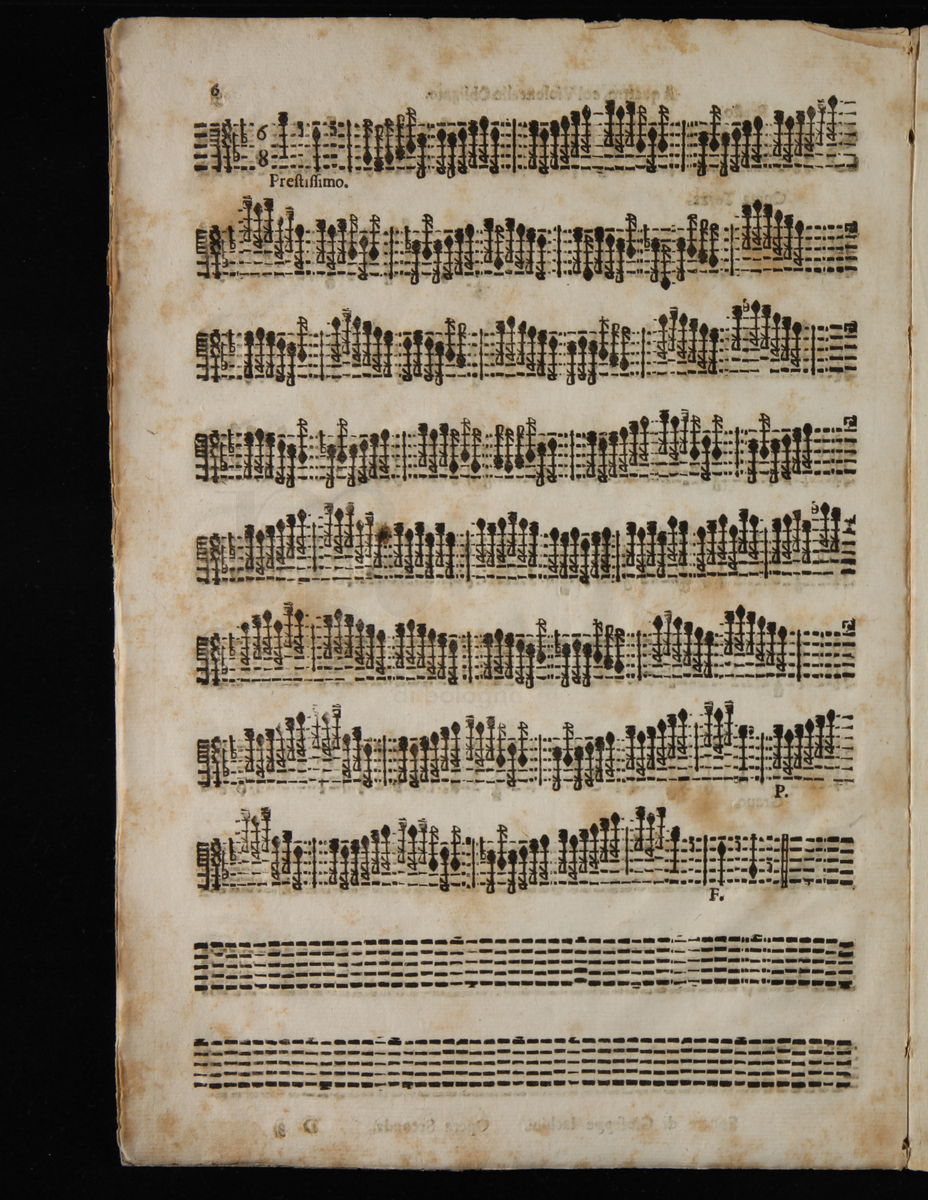 6
6
8
Prestissimo.
P.
F.